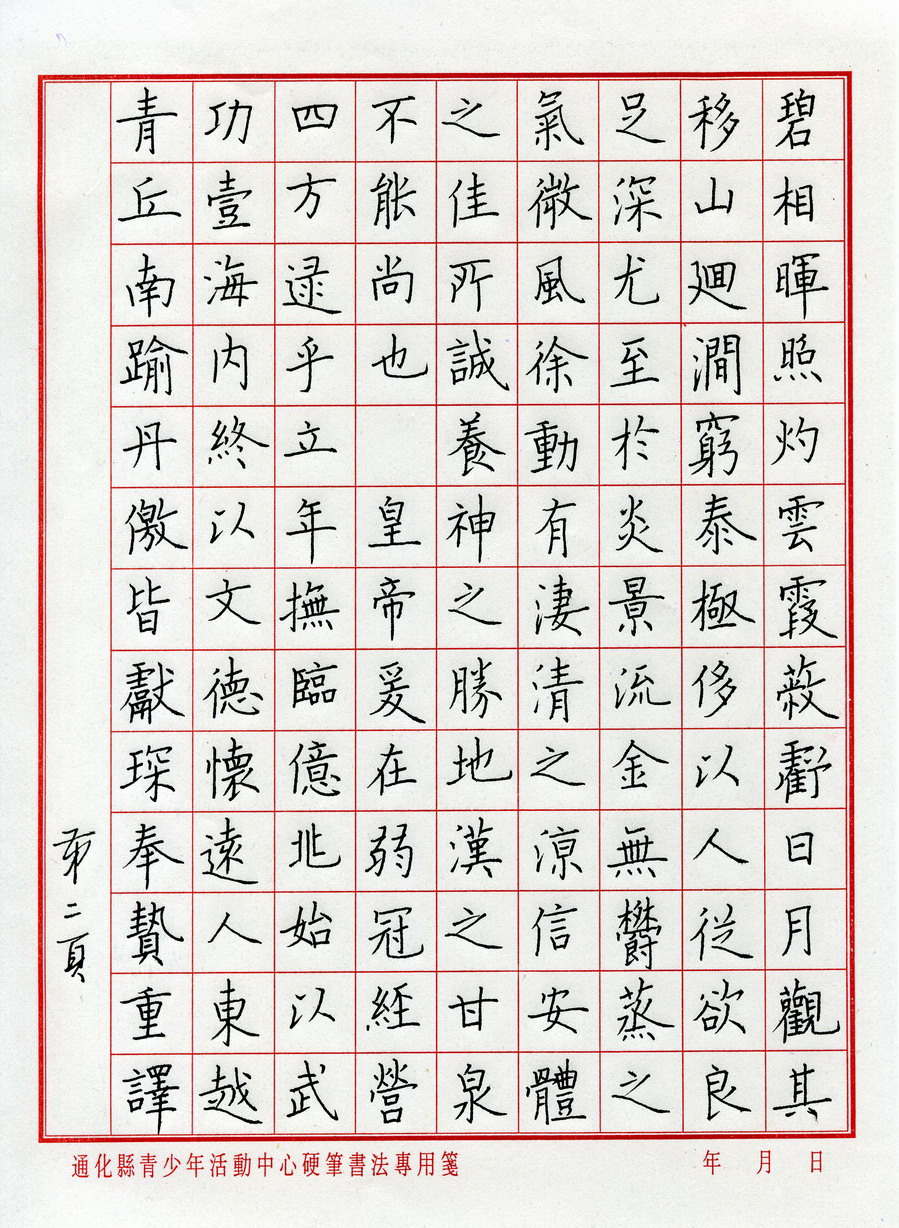 碧相暉照灼雲霞蔽虧日月觀其
移山廻澗窮泰極侈以人從欲良
足深尤至於炎景流金無欝蒸之
氣微風徐動有淒清之涼信安體
之佳所誠養神之勝地漢之甘泉
不能尚也 皇帝爰在弱冠經營
四方逯乎立年撫臨億兆始以武
功壹海内終以文德懷遠人東越
青丘南踰丹儌皆獻琛奉贄重譯
第二頁
通化縣青少年活動中心硬筆書法專用箋
年 月 日